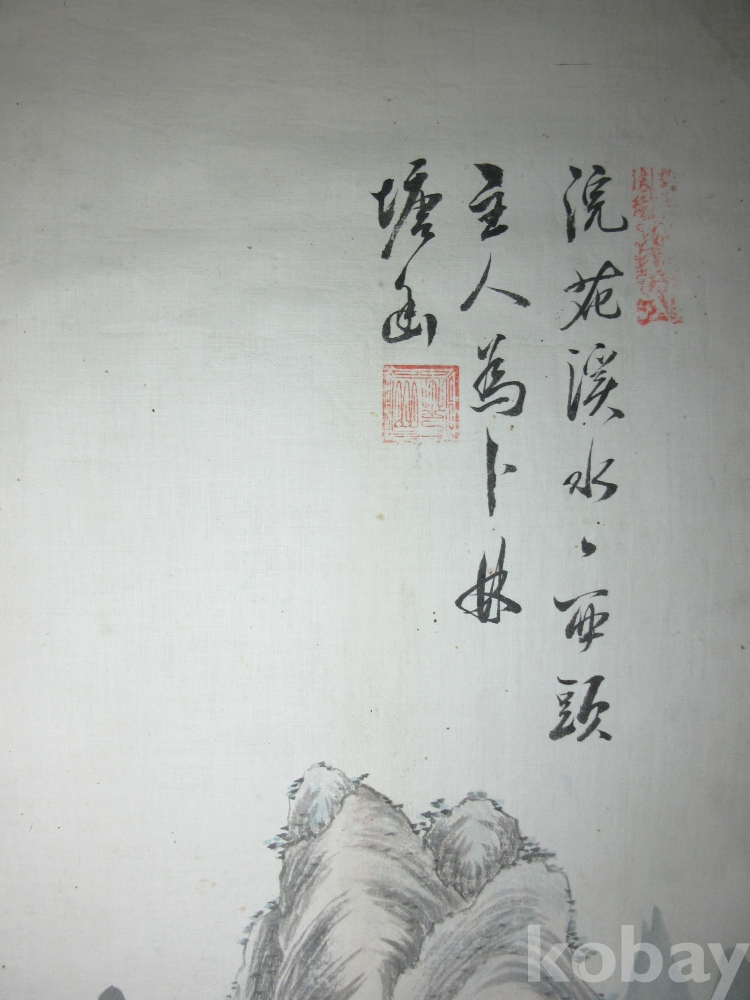 浣花溪水〻西頭
主人為卜林
塘幽
kobay